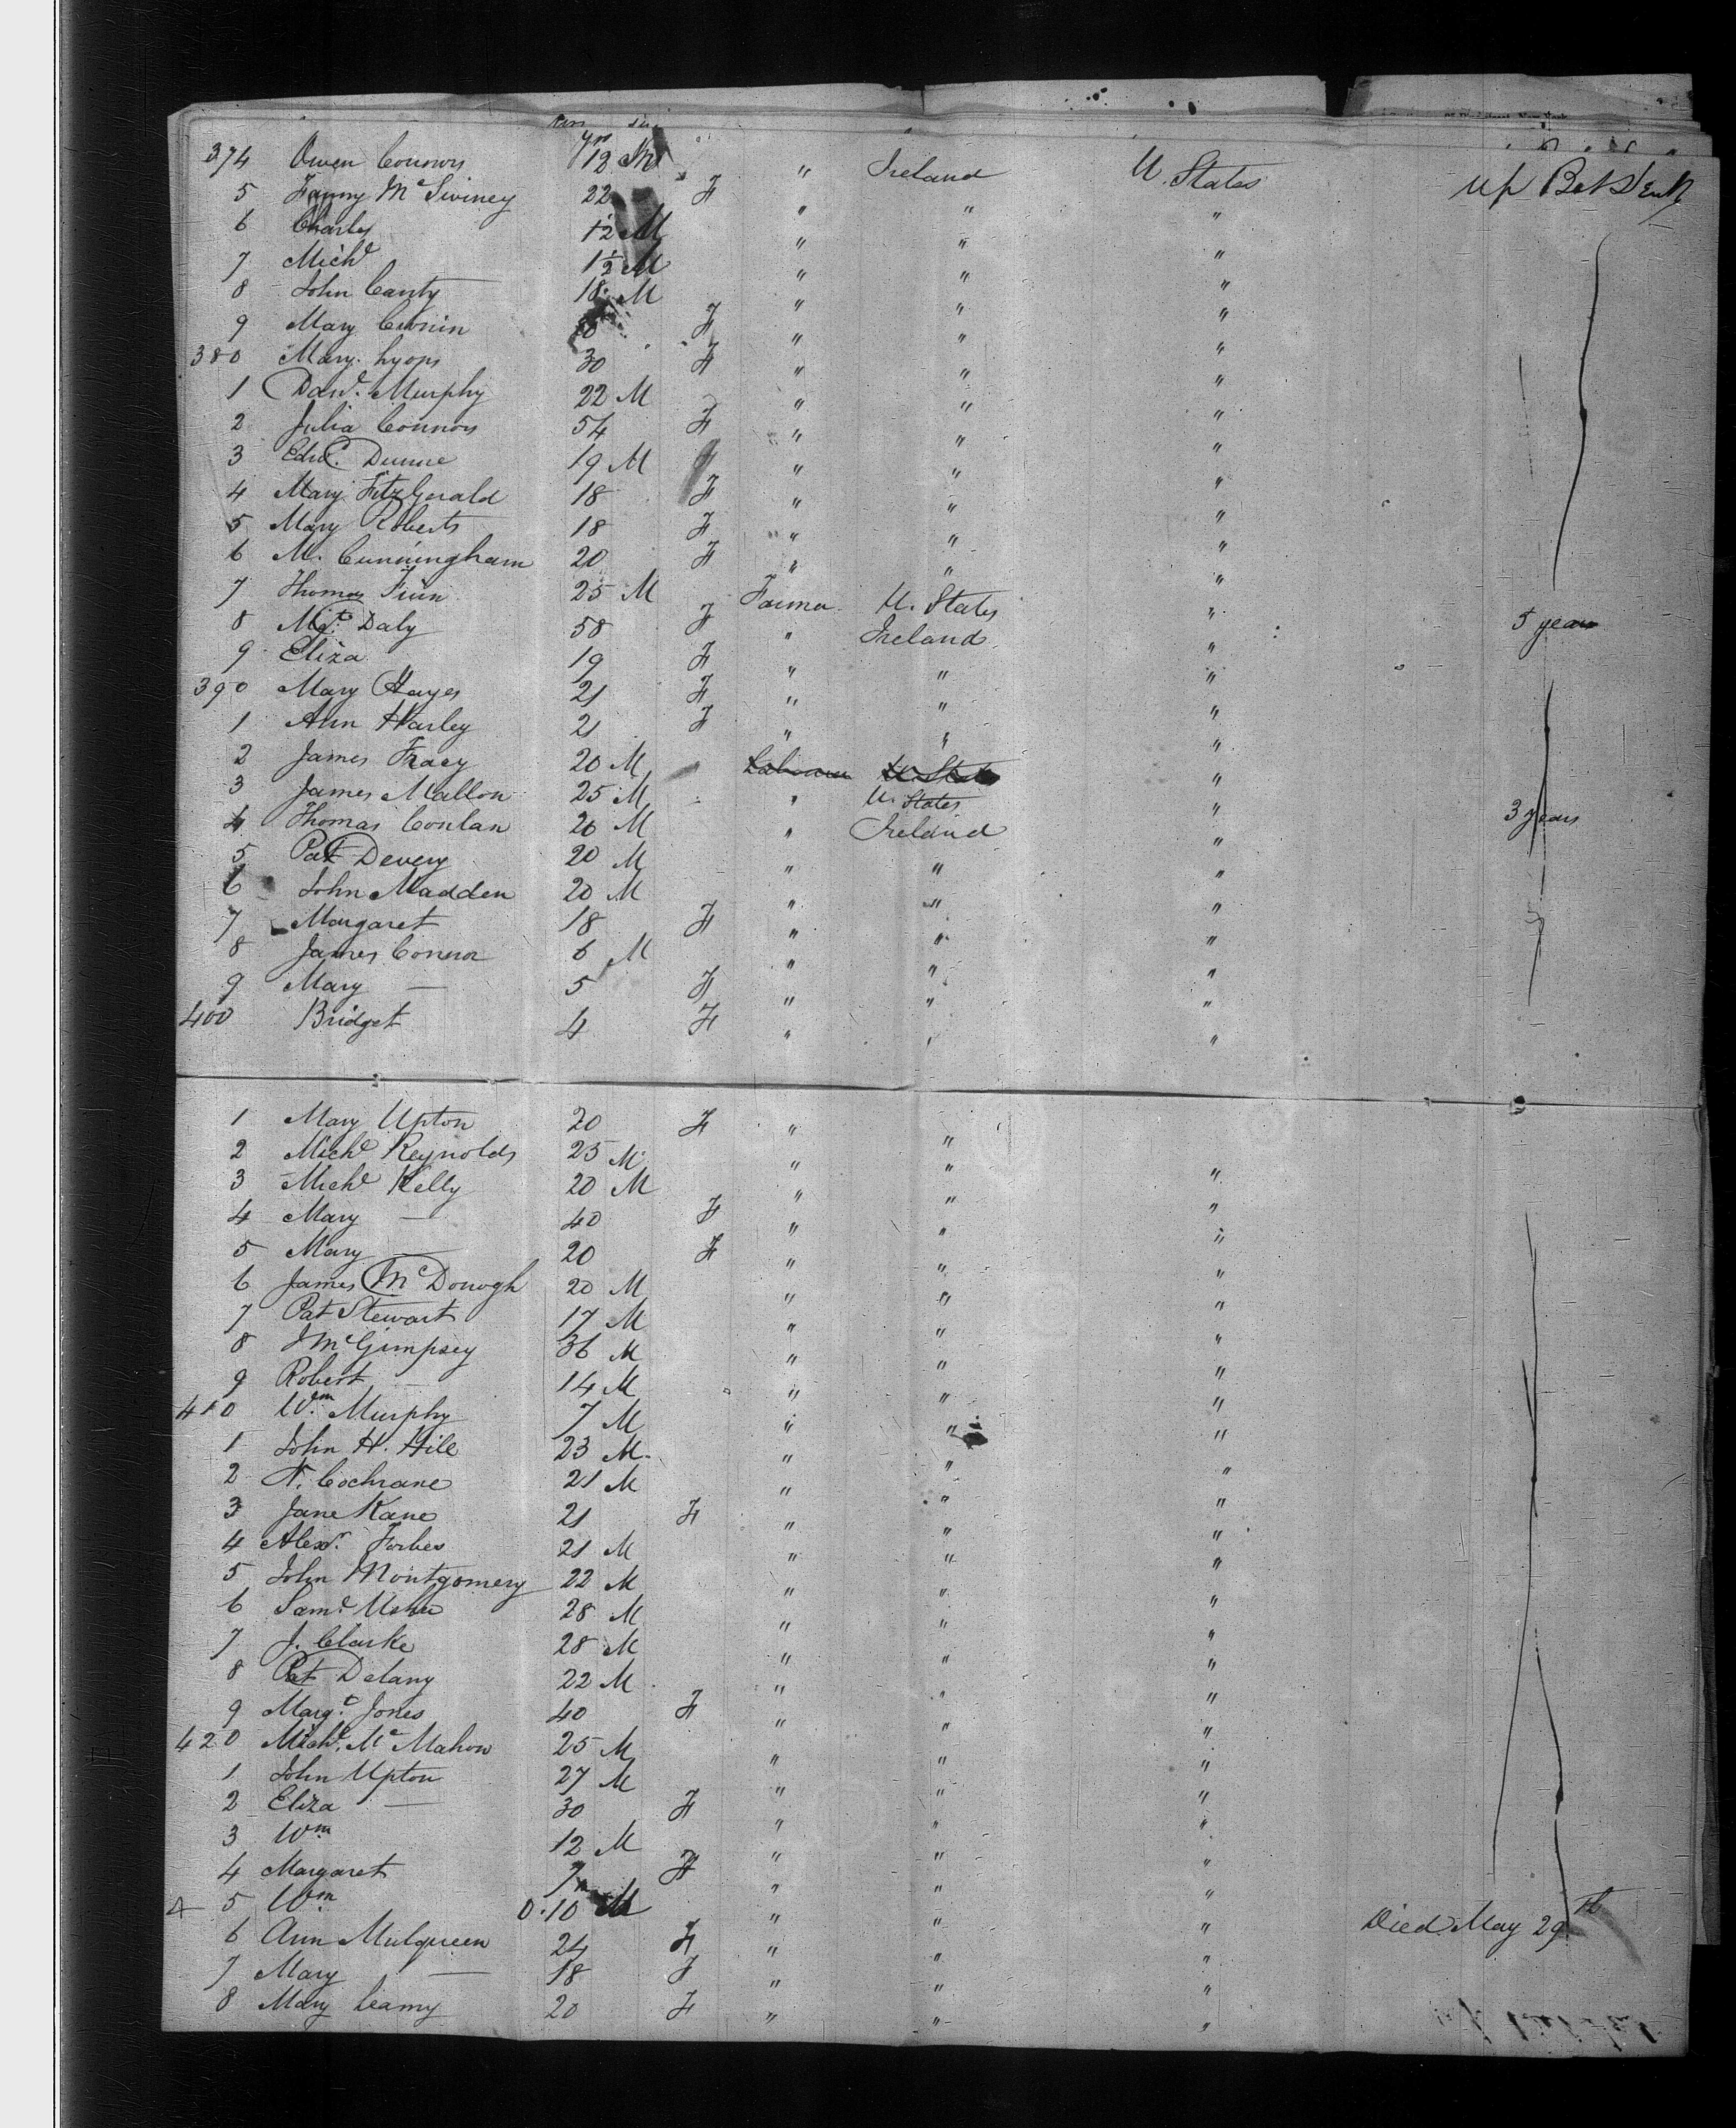 yrs
374 Owen Connors 12 M " Ireland U. States up Bet Deck
5 Fanny McSwiney 22 F " " "
6 Charley 12 M " " "
7 Michd 1½ M " " "
8 John Canty 18 M " " "
9 Mary Cronin F " " "
380 Mary Lyons 30 F " " "
1 Davd. Murphy 22 M " " "
2 Julia Connors 54 F " " "
3 Edwd. Dunne 19 M " " "
4 Mary FitzGerald 18 F " " "
5 Mary Roberts 18 F " " "
6 M. Cunningham 20 F " " "
7 Thomas Finn 25 M Farmer U. States " 5 years
8 Mgt. Daly 58 F " Ireland "
9 Eliza 19 F " " "
390 Mary Hayes 21 F " " "
1 Ann Harley 21 F " " "
2 James Tracy 20 M Labourer U. States "
3 James Mallon 25 M " U. States " 3 years
4 Thomas Conlan 26 M " Ireland "
5 Pat Devery 20 M " " "
6 John Madden 20 M " " "
7 Margaret 18 F " " "
8 James Connor 6 M " " "
9 Mary — 5 F " " "
400 Bridget 4 F " " "
1 Mary Upton 20 F " "
2 Michd Reynolds 25 M " " "
3 Michd Kelly 20 M " " "
4 Mary — 40 F " " "
5 Mary — 20 F " " "
6 James McDonogh 20 M " " "
7 Pat Stewart 17 M " " "
8 J McGimpsey 36 M " " "
9 Robert — 14 M " " "
410 Wm. Murphy 7 M " " "
1 John H. Hill 23 M " " "
2 N. Cochrane 21 M " " "
3 Jane Kane 21 F " " "
4 Alexr. Forbes 21 M " " "
5 John Montgomery 22 M " " "
6 Saml. 28 M " " "
7 J. Clarke 28 M " " "
8 Pat Delany 22 M " " "
9 Margt. Jones 40 F " " "
420 Michd. McMahon 25 M " " "
1 John Upton 27 M " " "
2 Eliza — 30 F " " "
3 Wm. 12 M " " "
4 Margaret 7 F " " "
5 Wm. 0.10 M " " " Died May 29th
6 Ann Mulqueen 24 F " " "
7 Mary — 18 F " " "
8 Mary Leamy 20 F " " "